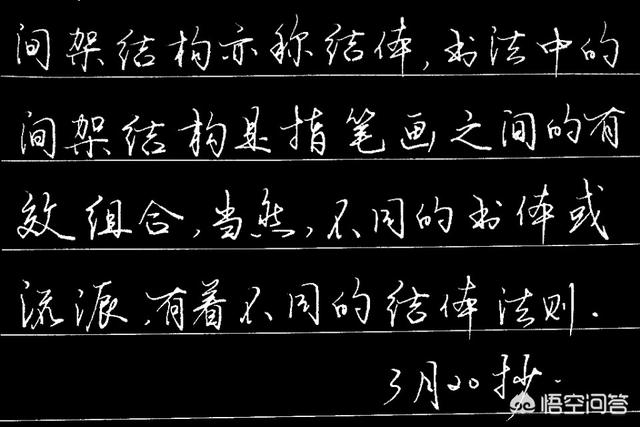 间架结构亦称结体,书法中的
间架结构是指笔画之间的有
效组合,当然,不同的书体或
流派,有着不同的结体法则.
3月20抄.
悟空问答